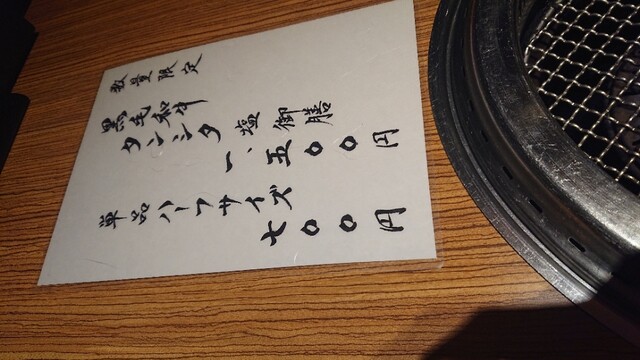 数量限定
黒毛和牛
タンシタ
塩御膳
一、五〇〇円
単品ハーフサイズ
七〇〇円